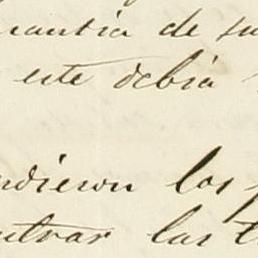 uantia de su
este debia
ndieron los
ntrar las t